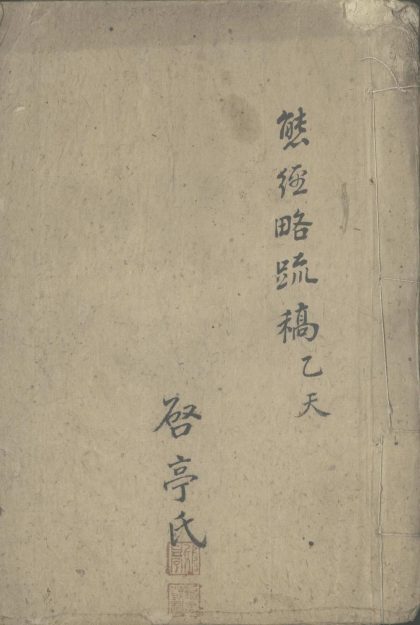 熊經略䟽稿乙天
启亭氏